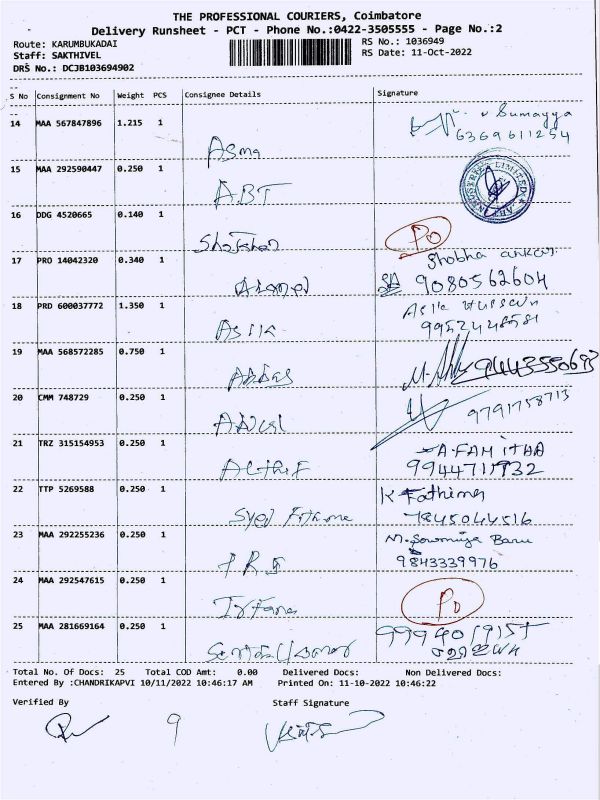 THE PROFESSIONAL COURIERS, Coimbatore
Delivery Runsheet - PCT - Phone No.:0422-3505555 - Page No.:2
Route: KARUMBUKADAI RS No.: 1036949
Staff: SAKTHIVEL RS Date: 11-Oct-2022
DRS No.: DCJB103694902
S No Consignment No Weight PCS Consignee Details Signature
14 MAA 567847896 1.215 1 Asma Sumayya
6369611254
15 MAA 292590447 0.250 1 ABT LIMITED
16 DDG 4520665 0.140 1 PO
17 PRO 14042320 0.340 1 Shobha
9080562604
18 PRD 600037772 1.350 1 Asik Asik
19 MAA 568572285 0.750 1 Abbas 9443550693
20 CMM 748729 0.250 1 9791758713
21 TRZ 315154953 0.250 1 Althif A.FAMITHA
9944711932
22 TTP 5269588 0.250 1 Syed K Fathima
7845044516
23 MAA 292255236 0.250 1 M. Sowmiya Banu
9843339976
24 MAA 292547615 0.250 1 Irfana PO
25 MAA 281669164 0.250 1
Total No. Of Docs: 25 Total COD Amt: 0.00 Delivered Docs: Non Delivered Docs:
Entered By :CHANDRIKAPVI 10/11/2022 10:46:17 AM Printed On: 11-10-2022 10:46:22
Verified By Staff Signature
9